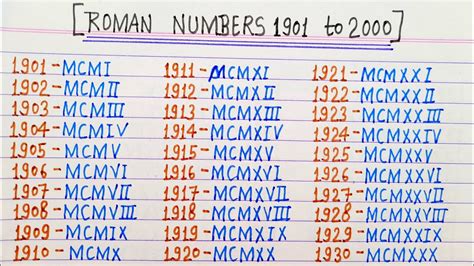 [ROMAN NUMBERS 1901 to 2000]
1901-MCMI 1911-MCMXI 1921-MCMXXI
1902-MCMII 1912-MCMXII 1922-MCMXXII
1903-MCMIII 1913-MCMXIII 1923-MCMXXIII
1904-MCMIV 1914-MCMXIV 1924-MCMXXIV
1905-MCMV 1915-MCMXV 1925-MCMXXV
1906-MCMVI 1916-MCMXVI 1926-MCMXXVI
1907-MCMVII 1917-MCMXVII 1927-MCMXXVII
1908-MCMVIII 1918-MCMXVIII 1928-MCMXXVIII
1909-MCMIX 1919-MCMXIX 1929-MCMXXIX
1910-MCMX 1920-MCMXX 1930-MCMXXX